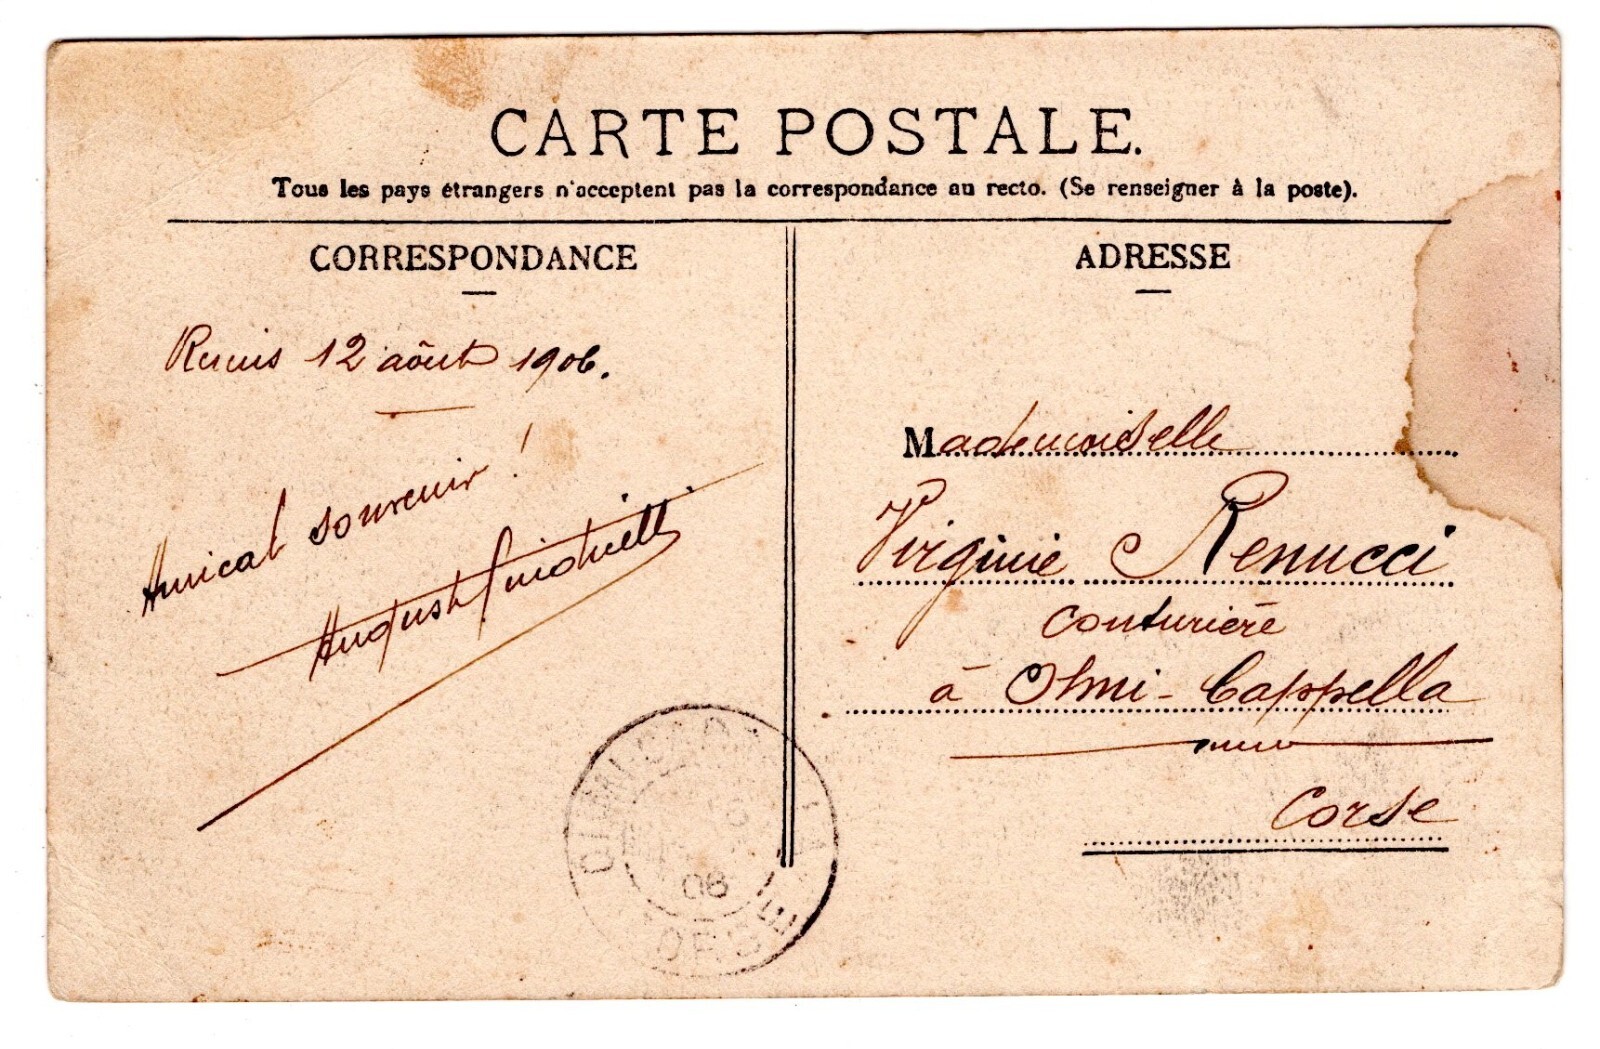 CARTE POSTALE.
Tous les pays étrangers n'acceptent pas la correspondance au recto. (Se renseigner à la poste).
CORRESPONDANCE
12 août 1906.
Amical souvenir !
August
ADRESSE
Mademoiselle
Virginie Renucci
Couturière
à Olmi-Cappella
Corse
08
CORSE